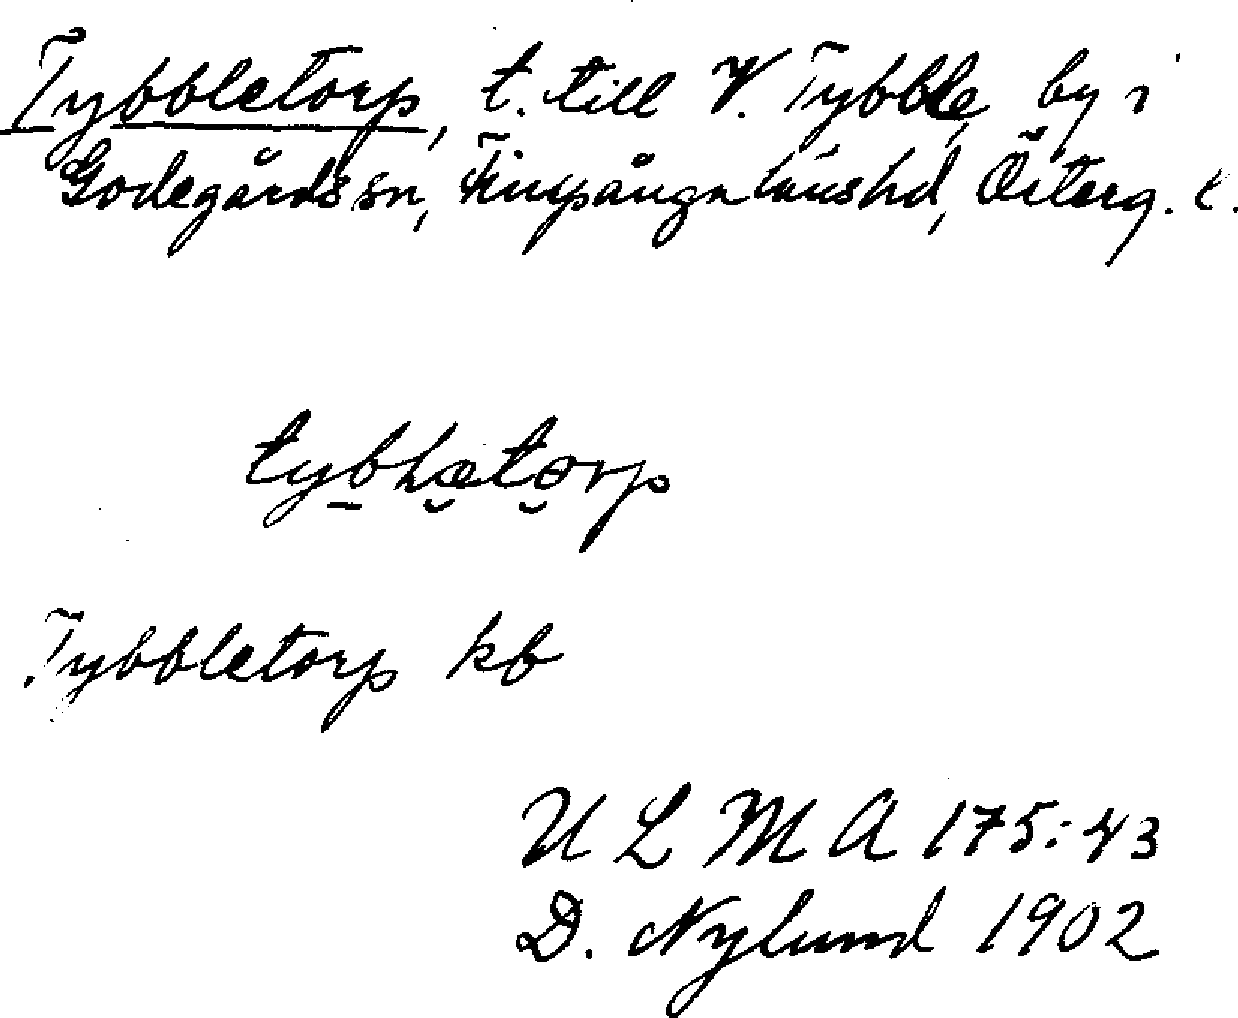 Tybbletorp, t. till V. Tybble, by i
Godegårds sn, Finspånga länshd, Österg. l.
Tybbletorp kb
U L M A 175:43
D. Nylund 1902